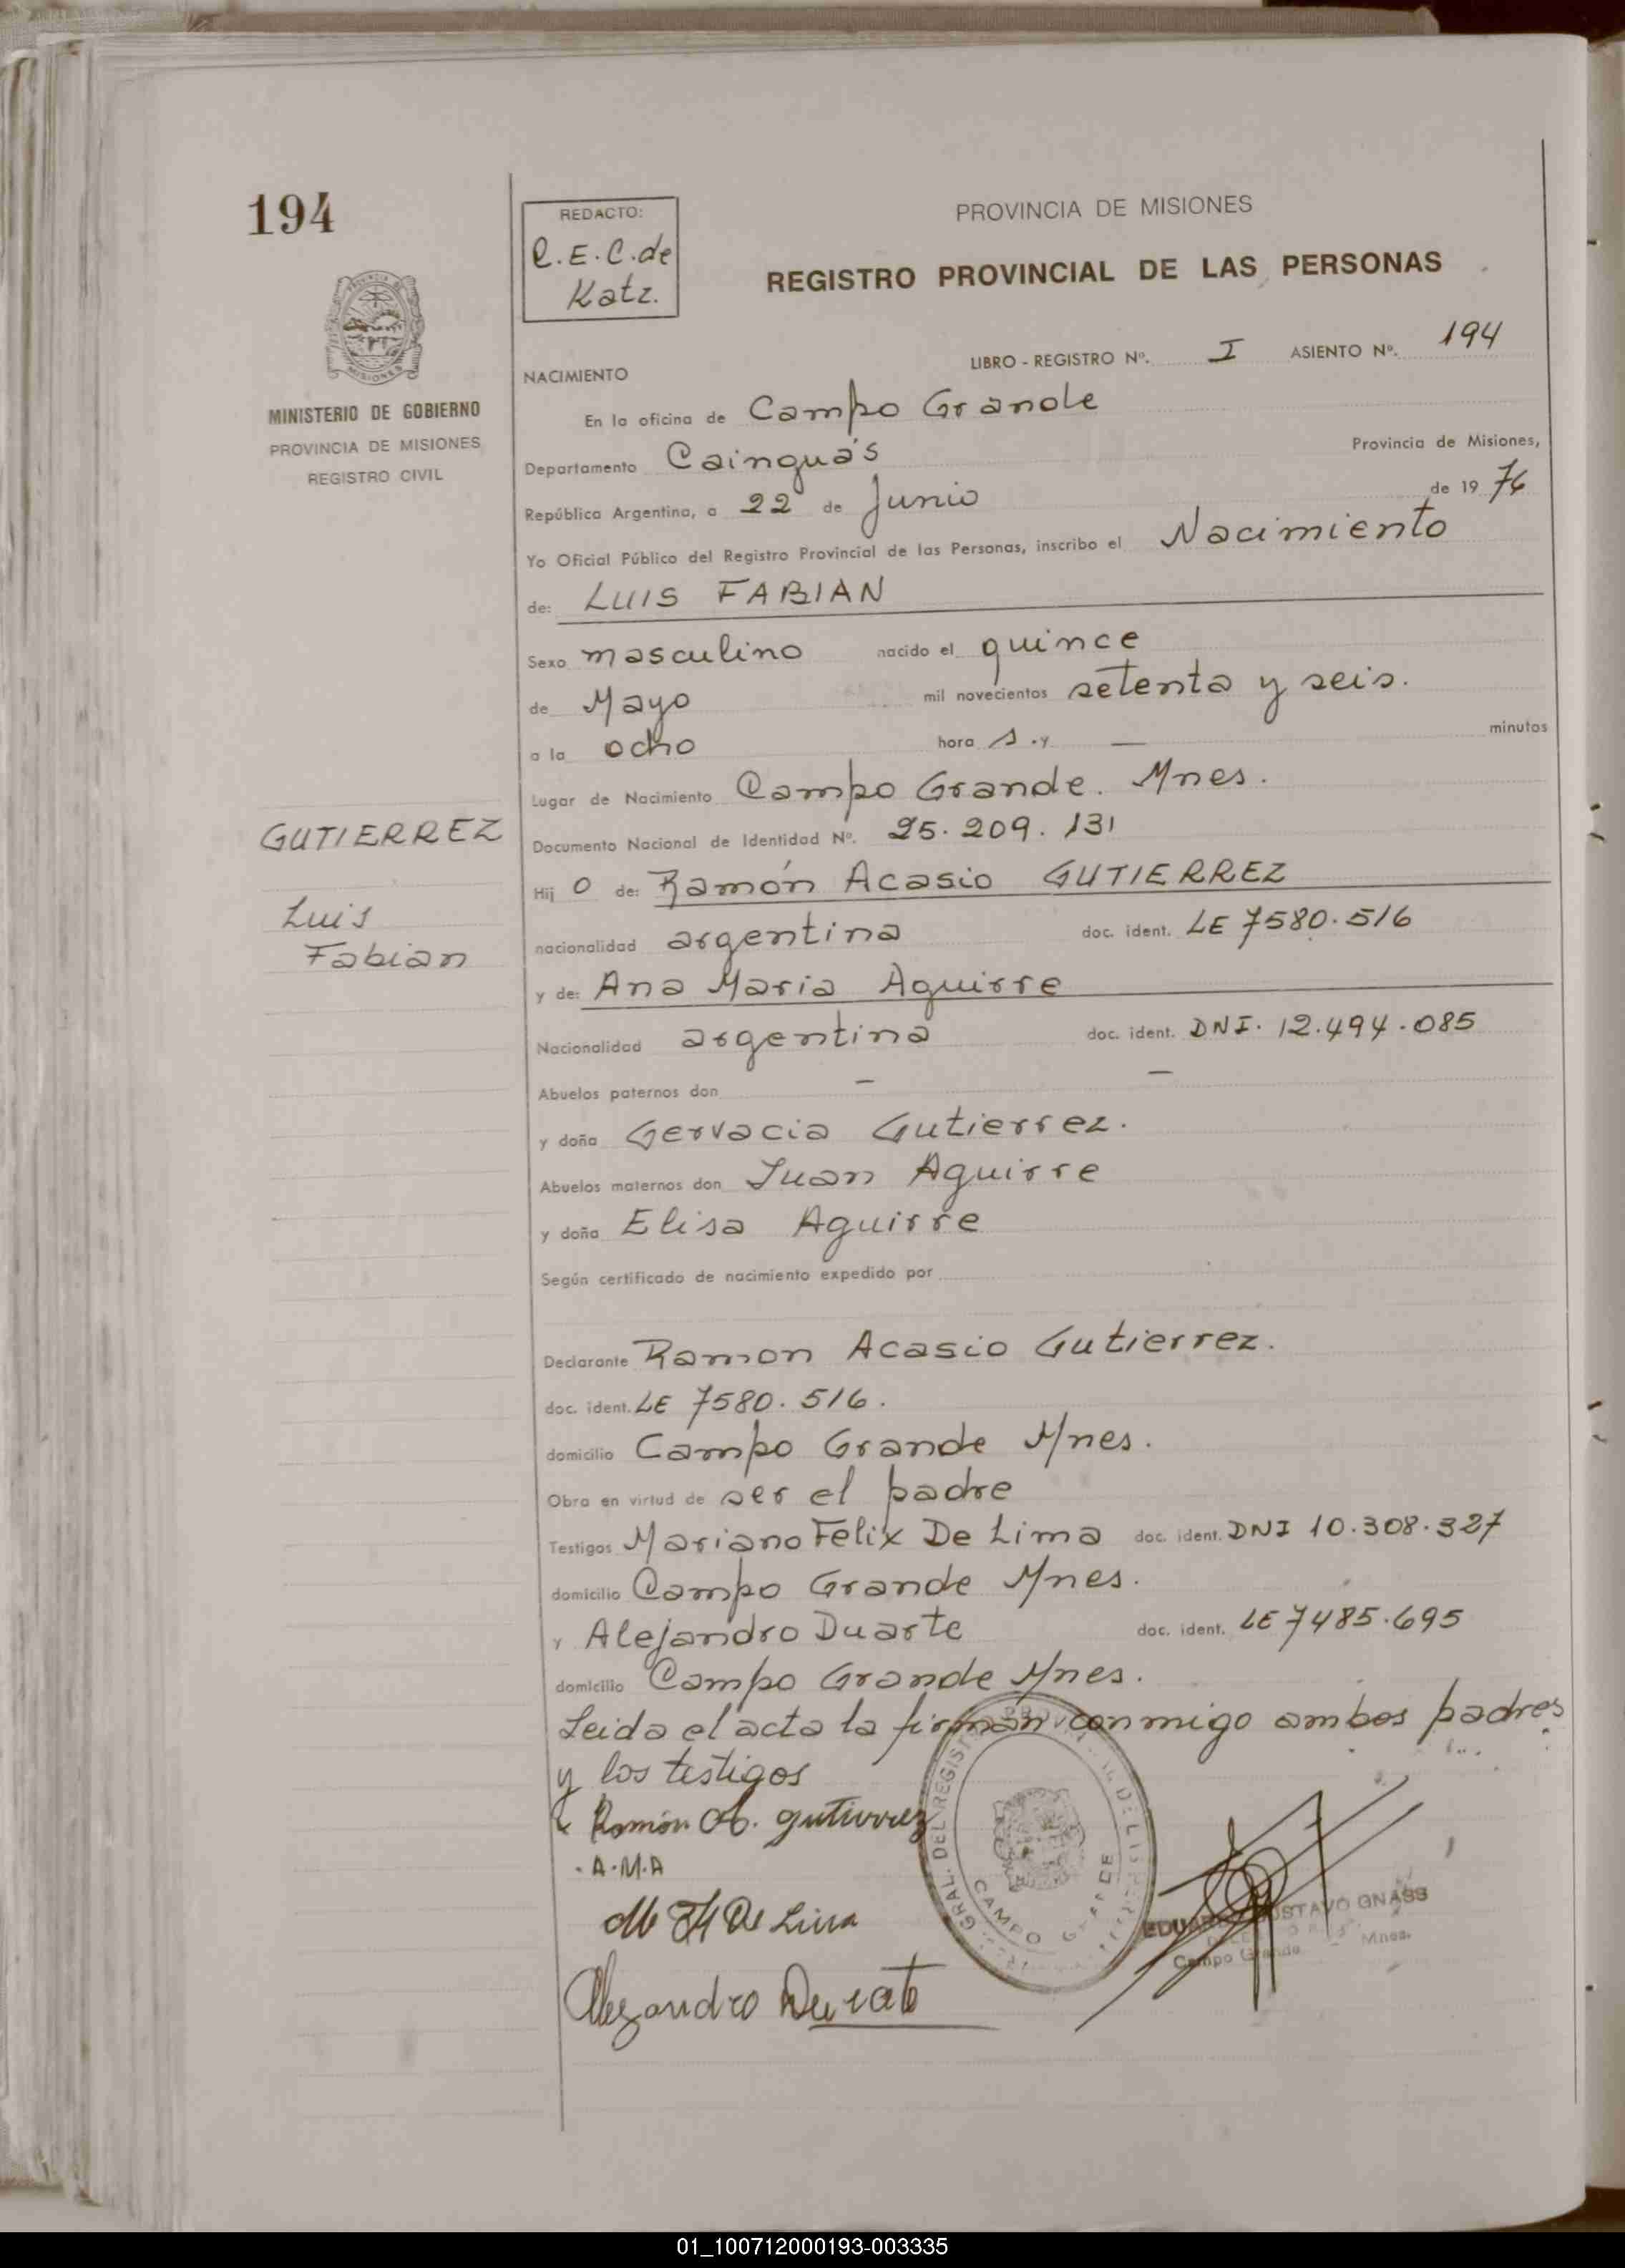 194
REDACTO:
R.E.C.de
Katz.
PROVINCIA DE MISIONES
REGISTRO PROVINCIAL DE LAS PERSONAS
MISIONES
MINISTERIO DE GOBIERNO
PROVINCIA DE MISIONES
REGISTRO CIVIL
LIBRO - REGISTRO Nº. I ASIENTO Nº. 194
NACIMIENTO
En la oficina de Campo Grande
Departamento Cainguás Provincia de Misiones,
República Argentina, a 22 de Junio de 19 76
Yo Oficial Público del Registro Provincial de las Personas, inscribo el Nacimiento
de: LUIS FABIAN
Sexo masculino nacido el quince
de Mayo mil novecientos setenta y seis.
a la ocho hora s . y — minutos
Lugar de Nacimiento Campo Grande. Mnes.
Documento Nacional de Identidad Nº. 25.209.131
GUTIERREZ
Luis
Fabian
Hij o de: Ramón Acasio GUTIERREZ
nacionalidad argentina doc. ident. LE 7580.516
y de: Ana Maria Aguirre
Nacionalidad argentina doc. ident. DNI. 12.494.085
Abuelos paternos don — —
y doña Gervacia Gutierrez.
Abuelos maternos don Juan Aguirre
y doña Elisa Aguirre
Según certificado de nacimiento expedido por
Declarante Ramon Acasio Gutierrez.
doc. ident. LE 7580.516.
domicilio Campo Grande Mnes.
Obra en virtud de ser el padre
Testigos Mariano Felix De Lima doc. ident. DNI 10.308.327
domicilio Campo Grande Mnes.
y Alejandro Duarte doc. ident. LE 7485.695
domicilio Campo Grande Mnes.
Leida el acta la firman conmigo ambos padres
y los testigos
Ramón A. gutierrez
. A.M.A
M F De Lima
Alejandro Duarte
GRAL. DEL REGIST
CAMPO GRANDE
EDUARDO GUSTAVO GNASS
Campo Grande - Mnes.
01_100712000193-003335